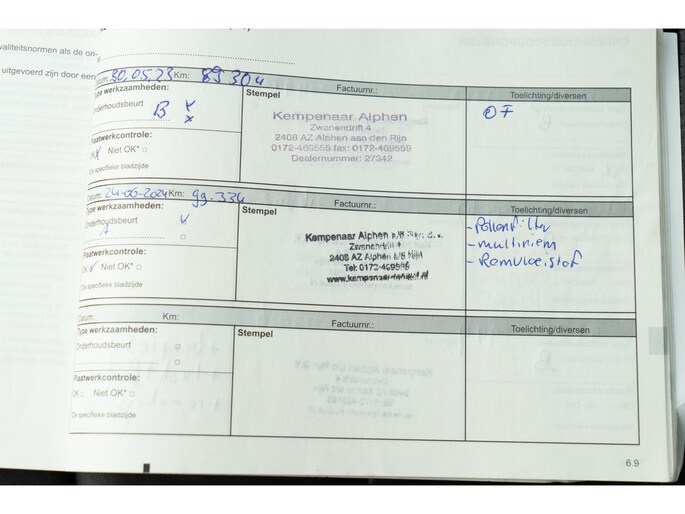 waliteitsnormen als de on-
uitgevoerd zijn door een
Datum: 30.05.23 Km: 89304
Factuurnr.:
Type werkzaamheden:
Stempel
Toelichting/diversen
Onderhoudsbeurt B
Kempenaar Alphen
Zwanendrift 4
2408 AZ Alphen aan den Rijn
0172-469555 fax: 0172-469559
Dealernummer: 27342
OF
Plaatwerkcontrole:
OK Niet OK*
De specifieke bladzijde
Datum: 24-06-2024 Km: 99.334
Factuurnr.:
Type werkzaamheden:
Stempel
Toelichting/diversen
Onderhoudsbeurt
A
Kempenaar Alphen
Zwanendrift 4
2408 AZ Alphen a/d Rijn
Tel: 0172-469555
- Pollenfilter
- multiriem
- Remvloeistof
Plaatwerkcontrole:
OK Niet OK*
De specifieke bladzijde
Datum: Km:
Factuurnr.:
Type werkzaamheden:
Stempel
Toelichting/diversen
Onderhoudsbeurt
Plaatwerkcontrole:
OK Niet OK*
De specifieke bladzijde
6.9